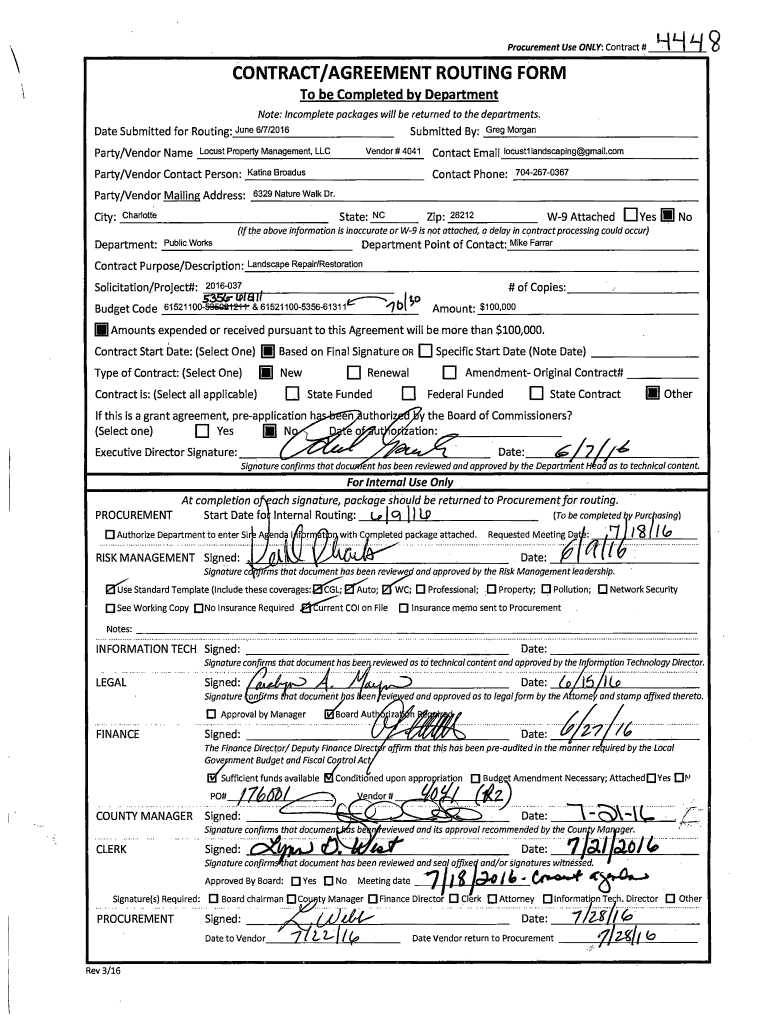 Procurement Use ONLY: Contract # 4448
CONTRACT/AGREEMENT ROUTING FORM
To be Completed by Department
Note: Incomplete packages will be returned to the departments.
Date Submitted for Routing: June 6/7/2016 Submitted By: Greg Morgan
Party/Vendor Name Locust Property Management, LLC Vendor # 4041 Contact Email locust1landscaping@gmail.com
Party/Vendor Contact Person: Katina Broadus Contact Phone: 704-267-0367
Party/Vendor Mailing Address: 6329 Nature Walk Dr.
City: Charlotte State: NC Zip: 28212 W-9 Attached Yes No
(If the above information is inaccurate or W-9 is not attached, a delay in contract processing could occur)
Department: Public Works Department Point of Contact: Mike Farrar
Contract Purpose/Description: Landscape Repair/Restoration
Solicitation/Project#: 2016-037 # of Copies:
5356 61311
Budget Code 61521100- & 61521100-5356-61311 70/30 Amount: $100,000
Amounts expended or received pursuant to this Agreement will be more than $100,000.
Contract Start Date: (Select One) Based on Final Signature OR Specific Start Date (Note Date)
Type of Contract: (Select One) New Renewal Amendment- Original Contract#
Contract is: (Select all applicable) State Funded Federal Funded State Contract Other
If this is a grant agreement, pre-application has been authorized by the Board of Commissioners?
(Select one) Yes No Date of authorization:
Executive Director Signature: Date: 6/7/16
Signature confirms that document has been reviewed and approved by the Department Head as to technical content.
For Internal Use Only
At completion of each signature, package should be returned to Procurement for routing.
PROCUREMENT Start Date for Internal Routing: 6/9/16 (To be completed by Purchasing)
Authorize Department to enter Sire Agenda Information with Completed package attached. Requested Meeting Date: 7/18/16
RISK MANAGEMENT Signed: Date: 6/9/16
Signature confirms that document has been reviewed and approved by the Risk Management leadership.
Use Standard Template (Include these coverages: CGL; Auto; WC; Professional; Property; Pollution; Network Security
See Working Copy No Insurance Required Current COI on File Insurance memo sent to Procurement
Notes:
INFORMATION TECH Signed: Date:
Signature confirms that document has been reviewed as to technical content and approved by the Information Technology Director.
LEGAL Signed: Carolyn A. Date: 6/15/16
Signature confirms that document has been reviewed and approved as to legal form by the Attorney and stamp affixed thereto.
Approval by Manager Board Authorization Required
FINANCE Signed: Date: 6/27/16
The Finance Director/ Deputy Finance Director affirm that this has been pre-audited in the manner required by the Local
Government Budget and Fiscal Control Act.
Sufficient funds available Conditioned upon appropriation Budget Amendment Necessary; Attached Yes N
PO# 176001 Vendor # 4041 (R2)
COUNTY MANAGER Signed: Date: 7-21-16
Signature confirms that document has been reviewed and its approval recommended by the County Manager.
CLERK Signed: Lynn G. West Date: 7/21/2016
Signature confirms that document has been reviewed and seal affixed and/or signatures witnessed.
Approved By Board: Yes No Meeting date 7/18/2016 - Consent agenda
Signature(s) Required: Board chairman County Manager Finance Director Clerk Attorney Information Tech. Director Other
PROCUREMENT Signed: L. Webb Date: 7/28/16
Date to Vendor 7/22/16 Date Vendor return to Procurement 7/28/16
Rev 3/16